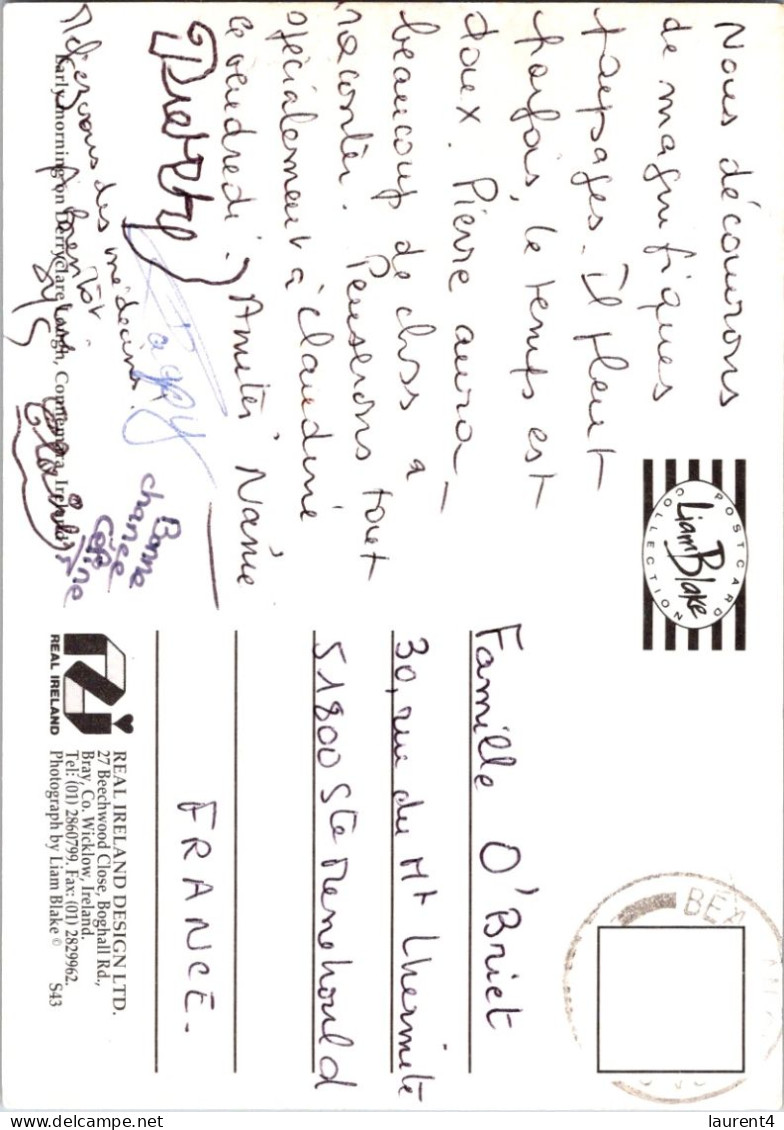 Nous découvrons
de magnifiques
paysages. Il pleut
parfois, le temps est
doux. Pierre aura
beaucoup de chos à
raconter. Penserons tout
spécialement à Claudine
ce vendredi. Amitiés Nanie
Pierrette
Méfiez vous des médecins.
A bientôt
Bonne
chance
Céline
Early morning on Derryclare Lough, Connemara, Ireland
POSTCARD
Liam Blake
COLLECTION
Famille O'Briet
30, rue du Mt Lhermite
51800 Ste Menehould
FRANCE.
REAL IRELAND
REAL IRELAND DESIGN LTD.
27 Beechwood Close, Boghall Rd.,
Bray, Co. Wicklow, Ireland.
Tel: (01) 2860799. Fax: (01) 2829962.
Photograph by Liam Blake © S43
laurent4